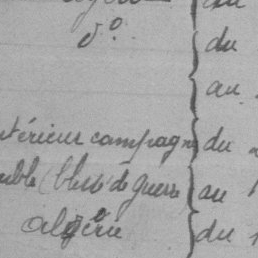 d°
du
au
térieur campagn du
uble (bless de guerre au
algérie du